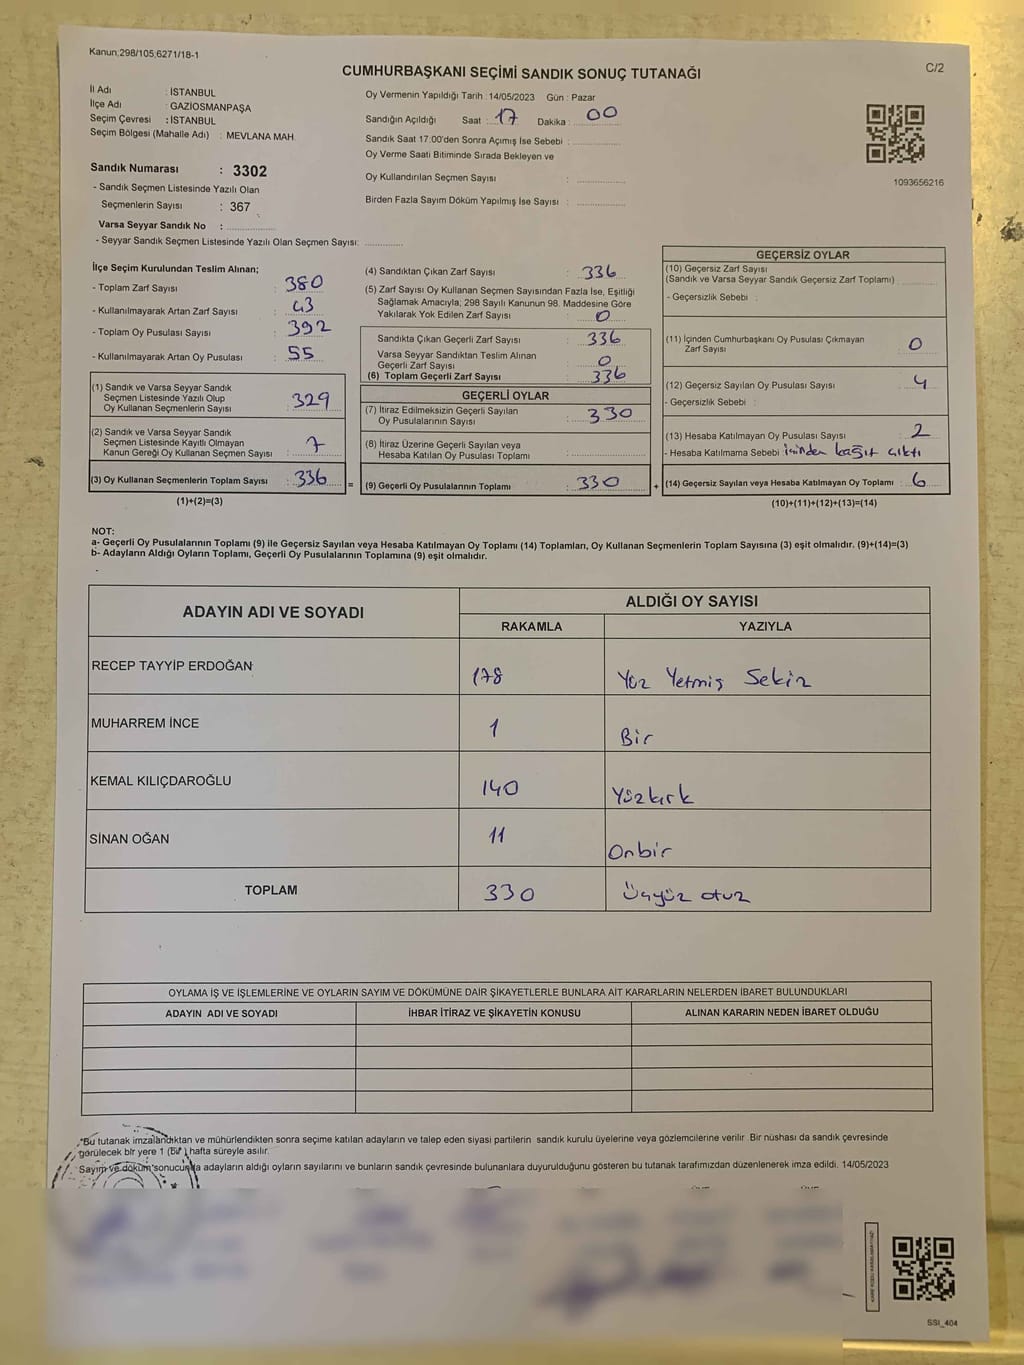 Kanun;298/105;6271/18-1
C/2
CUMHURBAŞKANI SEÇİMİ SANDIK SONUÇ TUTANAĞI
İl Adı : İSTANBUL
İlçe Adı : GAZİOSMANPAŞA
Seçim Çevresi : İSTANBUL
Seçim Bölgesi (Mahalle Adı) : MEVLANA MAH.
Sandık Numarası : 3302
- Sandık Seçmen Listesinde Yazılı Olan
Seçmenlerin Sayısı : 367
Varsa Seyyar Sandık No :
- Seyyar Sandık Seçmen Listesinde Yazılı Olan Seçmen Sayısı:
Oy Vermenin Yapıldığı Tarih : 14/05/2023 Gün : Pazar
Sandığın Açıldığı Saat : 17 Dakika : 00
Sandık Saat 17:00'den Sonra Açımış İse Sebebi :
Oy Verme Saati Bitiminde Sırada Bekleyen ve
Oy Kullandırılan Seçmen Sayısı :
Birden Fazla Sayım Döküm Yapılmış İse Sayısı :
1093656216
İlçe Seçim Kurulundan Teslim Alınan;
- Toplam Zarf Sayısı : 380
- Kullanılmayarak Artan Zarf Sayısı : 43
- Toplam Oy Pusulası Sayısı : 392
- Kullanılmayarak Artan Oy Pusulası : 55
(1) Sandık ve Varsa Seyyar Sandık
Seçmen Listesinde Yazılı Olup
Oy Kullanan Seçmenlerin Sayısı : 329
(2) Sandık ve Varsa Seyyar Sandık
Seçmen Listesinde Kayıtlı Olmayan
Kanun Gereği Oy Kullanan Seçmen Sayısı : 7
(3) Oy Kullanan Seçmenlerin Toplam Sayısı : 336
(1)+(2)=(3)
(4) Sandıktan Çıkan Zarf Sayısı : 336
(5) Zarf Sayısı Oy Kullanan Seçmen Sayısından Fazla İse, Eşitliği
Sağlamak Amacıyla; 298 Sayılı Kanunun 98. Maddesine Göre
Yakılarak Yok Edilen Zarf Sayısı : 0
Sandıkta Çıkan Geçerli Zarf Sayısı : 336
Varsa Seyyar Sandıktan Teslim Alınan
Geçerli Zarf Sayısı : 0
(6) Toplam Geçerli Zarf Sayısı : 336
GEÇERLİ OYLAR
(7) İtiraz Edilmeksizin Geçerli Sayılan
Oy Pusulalarının Sayısı : 330
(8) İtiraz Üzerine Geçerli Sayılan veya
Hesaba Katılan Oy Pusulası Toplamı :
= (9) Geçerli Oy Pusulalarının Toplamı : 330 +
GEÇERSİZ OYLAR
(10) Geçersiz Zarf Sayısı
(Sandık ve Varsa Seyyar Sandık Geçersiz Zarf Toplamı) :
- Geçersizlik Sebebi :
(11) İçinden Cumhurbaşkanı Oy Pusulası Çıkmayan
Zarf Sayısı : 0
(12) Geçersiz Sayılan Oy Pusulası Sayısı : 4
- Geçersizlik Sebebi :
(13) Hesaba Katılmayan Oy Pusulası Sayısı : 2
- Hesaba Katılmama Sebebi içinden kağıt çıktı
(14) Geçersiz Sayılan veya Hesaba Katılmayan Oy Toplamı : 6
(10)+(11)+(12)+(13)=(14)
NOT:
a- Geçerli Oy Pusulalarının Toplamı (9) ile Geçersiz Sayılan veya Hesaba Katılmayan Oy Toplamı (14) Toplamları, Oy Kullanan Seçmenlerin Toplam Sayısına (3) eşit olmalıdır. (9)+(14)=(3)
b- Adayların Aldığı Oyların Toplamı, Geçerli Oy Pusulalarının Toplamına (9) eşit olmalıdır.
ADAYIN ADI VE SOYADI
ALDIĞI OY SAYISI
RAKAMLA YAZIYLA
RECEP TAYYİP ERDOĞAN 178 Yüz Yetmiş Sekiz
MUHARREM İNCE 1 Bir
KEMAL KILIÇDAROĞLU 140 Yüzkırk
SİNAN OĞAN 11 Onbir
TOPLAM 330 Üçyüz otuz
OYLAMA İŞ VE İŞLEMLERİNE VE OYLARIN SAYIM VE DÖKÜMÜNE DAİR ŞİKAYETLERLE BUNLARA AİT KARARLARIN NELERDEN İBARET BULUNDUKLARI
ADAYIN ADI VE SOYADI İHBAR İTİRAZ VE ŞİKAYETİN KONUSU ALINAN KARARIN NEDEN İBARET OLDUĞU
*Bu tutanak imzalandıktan ve mühürlendikten sonra seçime katılan adayların ve talep eden siyasi partilerin sandık kurulu üyelerine veya gözlemcilerine verilir. Bir nüshası da sandık çevresinde
görülecek bir yere 1 (Bir) hafta süreyle asılır.
Sayım ve döküm sonucunda adayların aldığı oyların sayılarını ve bunların sandık çevresinde bulunanlara duyurulduğunu gösteren bu tutanak tarafımızdan düzenlenerek imza edildi. 14/05/2023
SSI_404